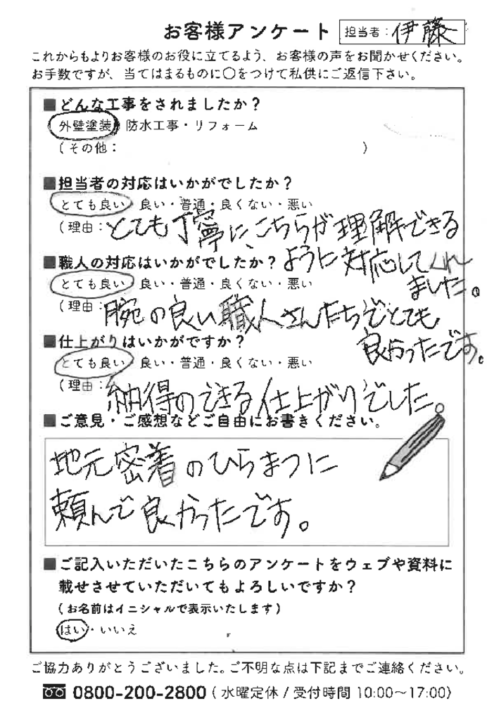 お客様アンケート 担当者：伊藤
これからもよりお客様のお役に立てるよう、お客様の声をお聞かせください。
お手数ですが、当てはまるものに〇をつけて私供にご返信下さい。
■どんな工事をされましたか？
外壁塗装・防水工事・リフォーム
（その他： ）
■担当者の対応はいかがでしたか？
とても良い・良い・普通・良くない・悪い
（理由：とても丁寧に、こちらが理解できる
ように対応してくれ
ました。
■職人の対応はいかがでしたか？
とても良い・良い・普通・良くない・悪い
（理由：腕の良い職人さんたちでとても
良かったです。
■仕上がりはいかがですか？
とても良い・良い・普通・良くない・悪い
（理由：納得のできる仕上がりでした。
■ご意見・ご感想などご自由にお書きください。
地元密着のひらまつに
頼んで良かったです。
■ご記入いただいたこちらのアンケートをウェブや資料に
載せさせていただいてもよろしいですか？
（お名前はイニシャルで表示いたします）
はい・いいえ
ご協力ありがとうございました。ご不明な点は下記までご連絡ください。
0800-200-2800（水曜定休/受付時間 10:00〜17:00）